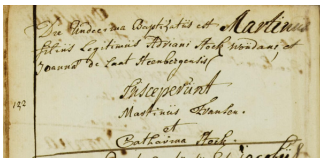 Die Undecima Baptizatus est Martinus
filius Legitimus Adriani Hock et
Joanna de Laat Steenbergensis
Susceperunt
192 Martinus Franken.
et
Catharina Hock.